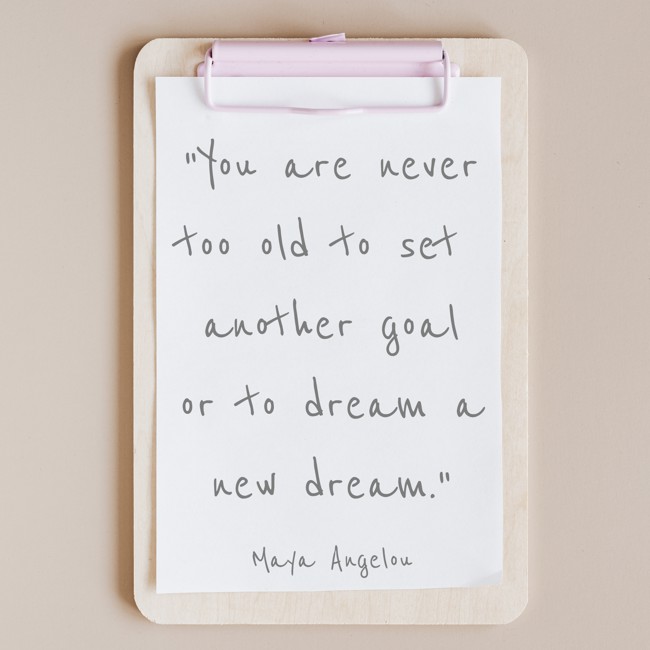 "You are never
too old to set
another goal
or to dream a
new dream."
Maya Angelou